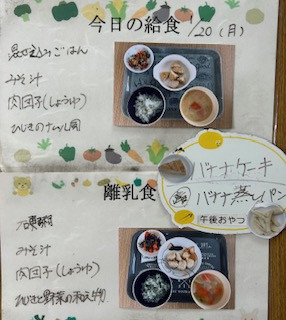 今日の給食 1/20 (月)
混ぜ込みごはん
みそ汁
肉団子(しょうゆ)
ひじきのナムル風
バナナケーキ
バナナ蒸しパン
午後おやつ
離乳食
軟飯
みそ汁
肉団子(しょうゆ)
ひじきと野菜の和え物